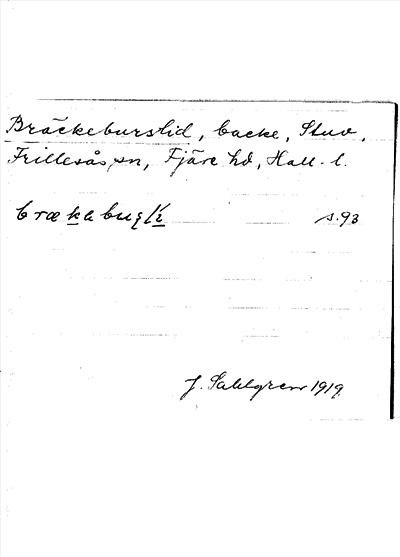 Bräckeburslid, backe, Stuv,
Frillesås sn, Fjäre hd, Hall. l.
s. 93
J. Sahlgren 1919